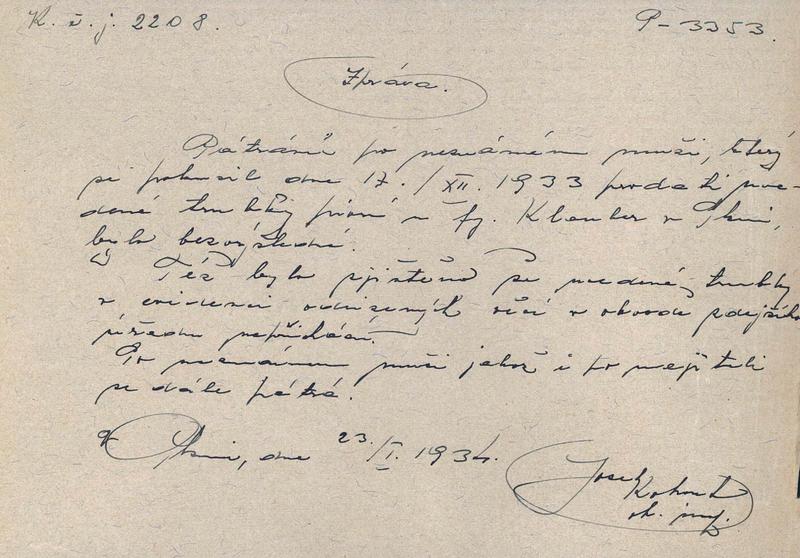 K. č. j. 2208.
P-3353.
Zpráva.
Pátrání po neznámém muži, který
se pokusil dne 17./XII. 1933 prodati uve-
dené trubky písní u fy. Klauber v Plzni,
bylo bezvýsledné.
Též bylo zjištěno že uvedené trubky
v evidenci odcizených věcí v obvodě zdejšího
úřadu nepřichází.
Po neznámém muži jakož i po majiteli
se dále pátrá.
V Plzni, dne 23./I. 1934.
Josef
Kohout